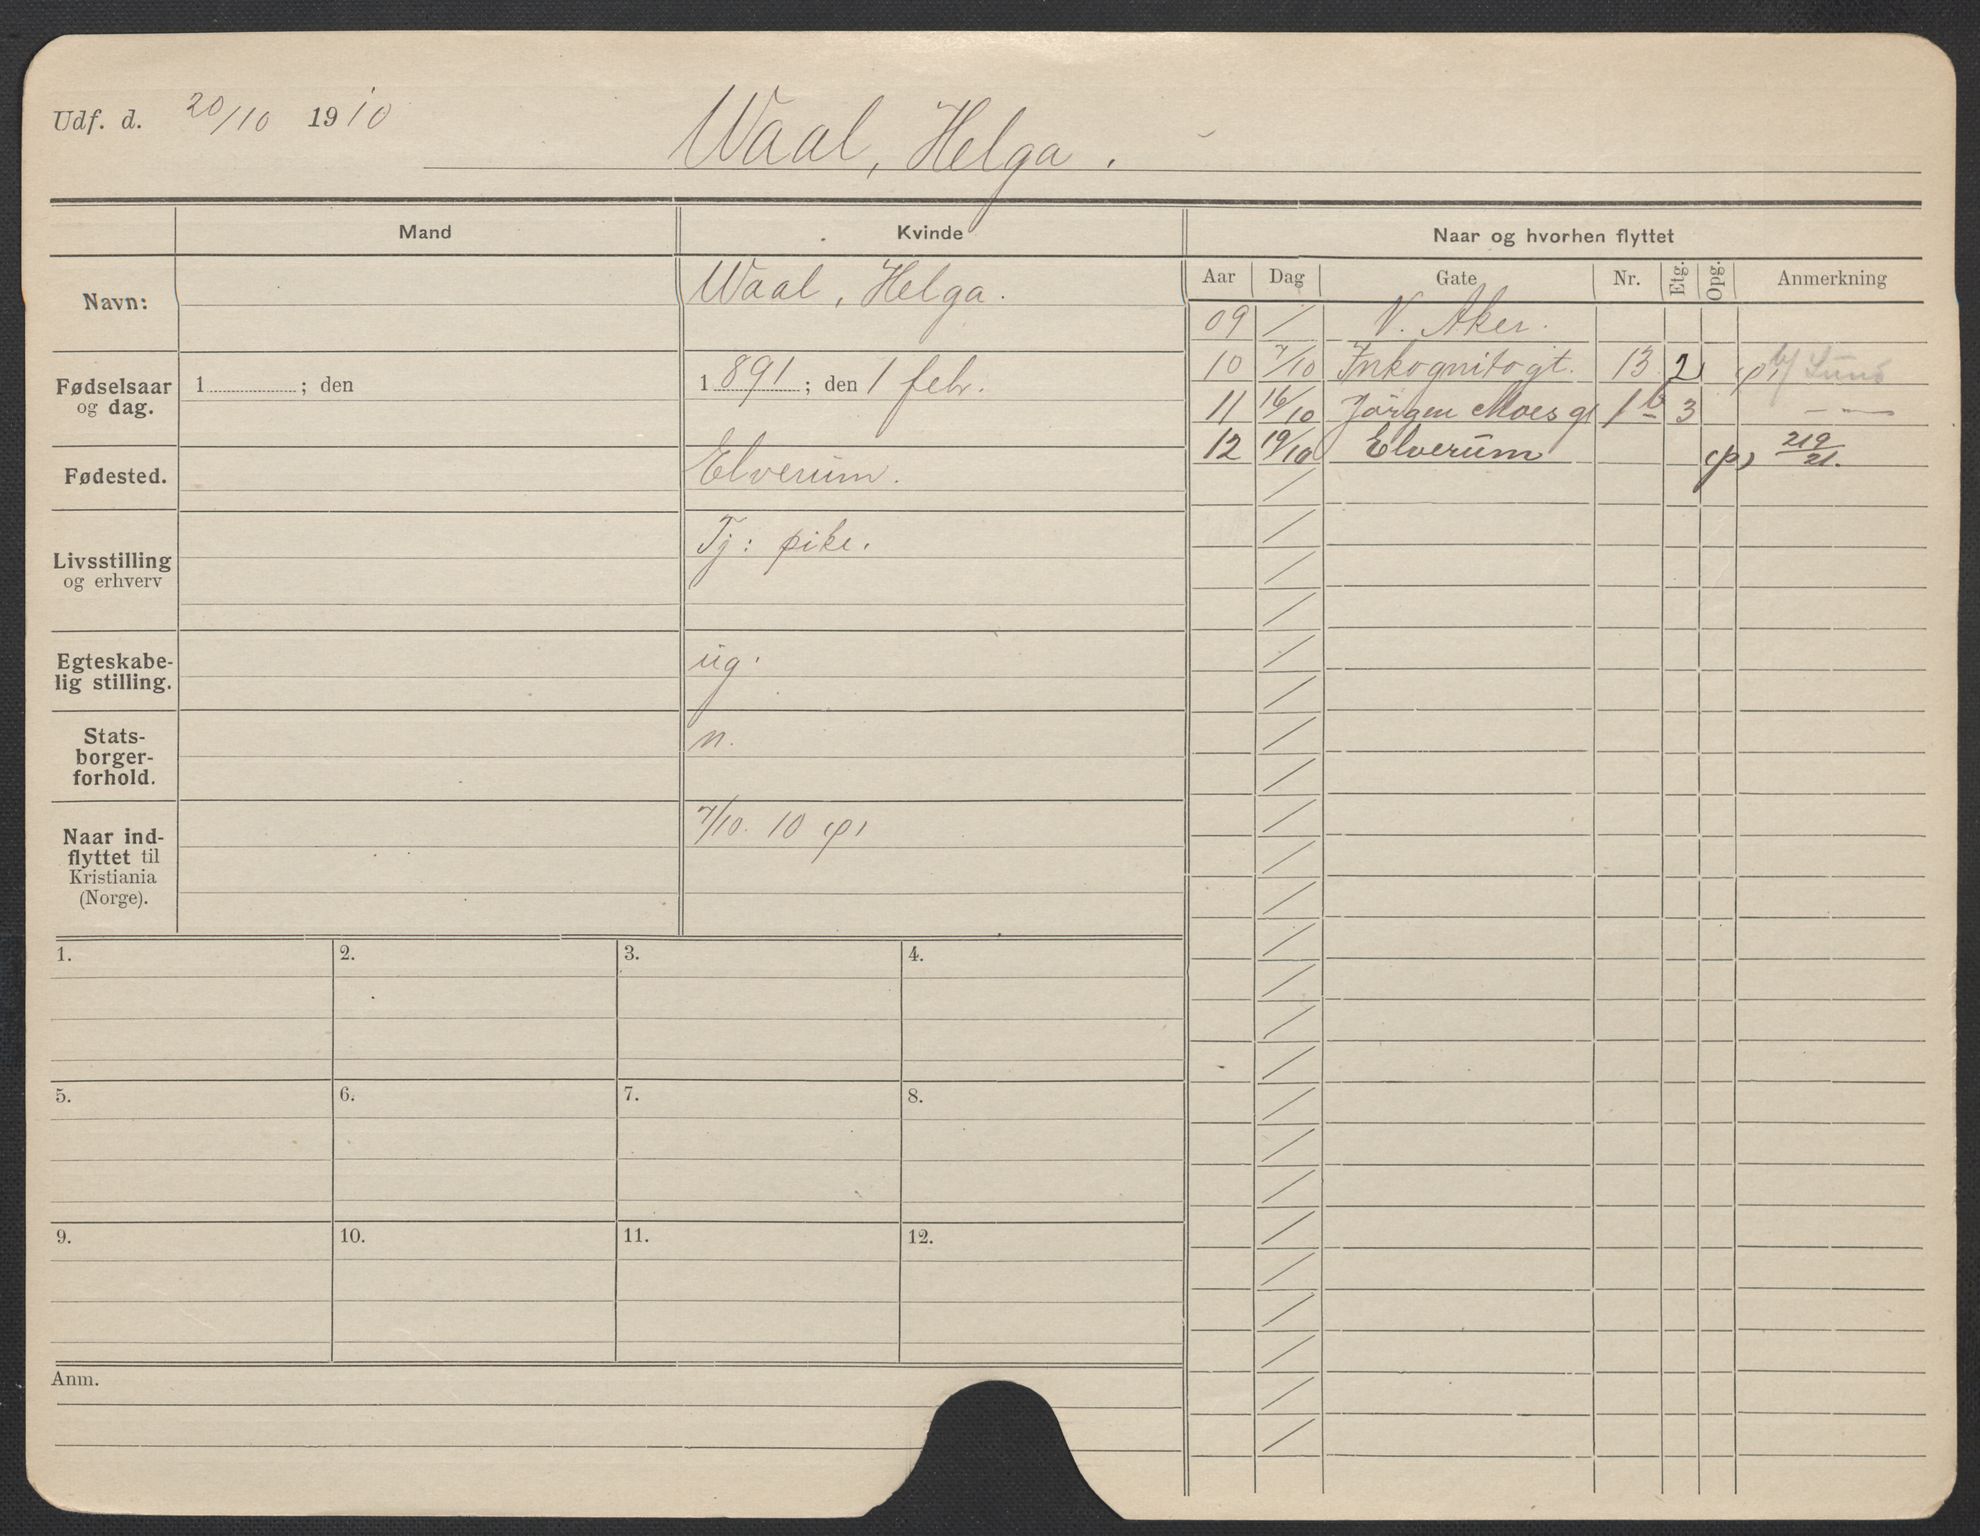 Udf. d. 20/10 1910
Waal, Helga.
Mand
Kvinde
Naar og hvorhen flyttet
Aar Dag Gate Nr. Etg. Opg. Anmerkning
Navn:
Waal, Helga.
Fødselsaar og dag.
1 ; den
1891 ; den 1 febr.
Fødested.
Elverum.
Livsstilling og erhverv
Tj: pike.
Egteskabe-
lig stilling.
ug.
Stats-
borger-
forhold.
n.
Naar ind-
flyttet til
Kristiania
(Norge).
7/10. 10 (p)
09 / V. Aker.
10 7/10 Inkognitogt. 13 2 (p) b/
11 16/10 Jørgen Moesg 1b 3 — —
12 19/10 Elverum (p) 219/21.
1. 2. 3. 4.
5. 6. 7. 8.
9. 10. 11. 12.
Anm.